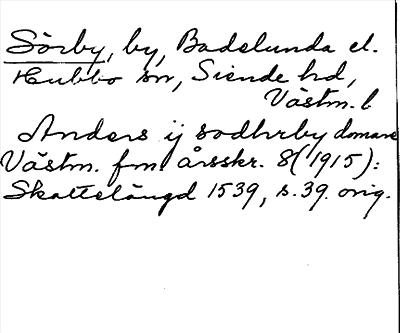 Sörby, by, Badelunda el.
Hubbo sn, Siende hd,
Västm. l
Anders ij sodhrby domare
Västm. fm årsskr. 8(1915):
Skattelängd 1539, s. 39. orig.